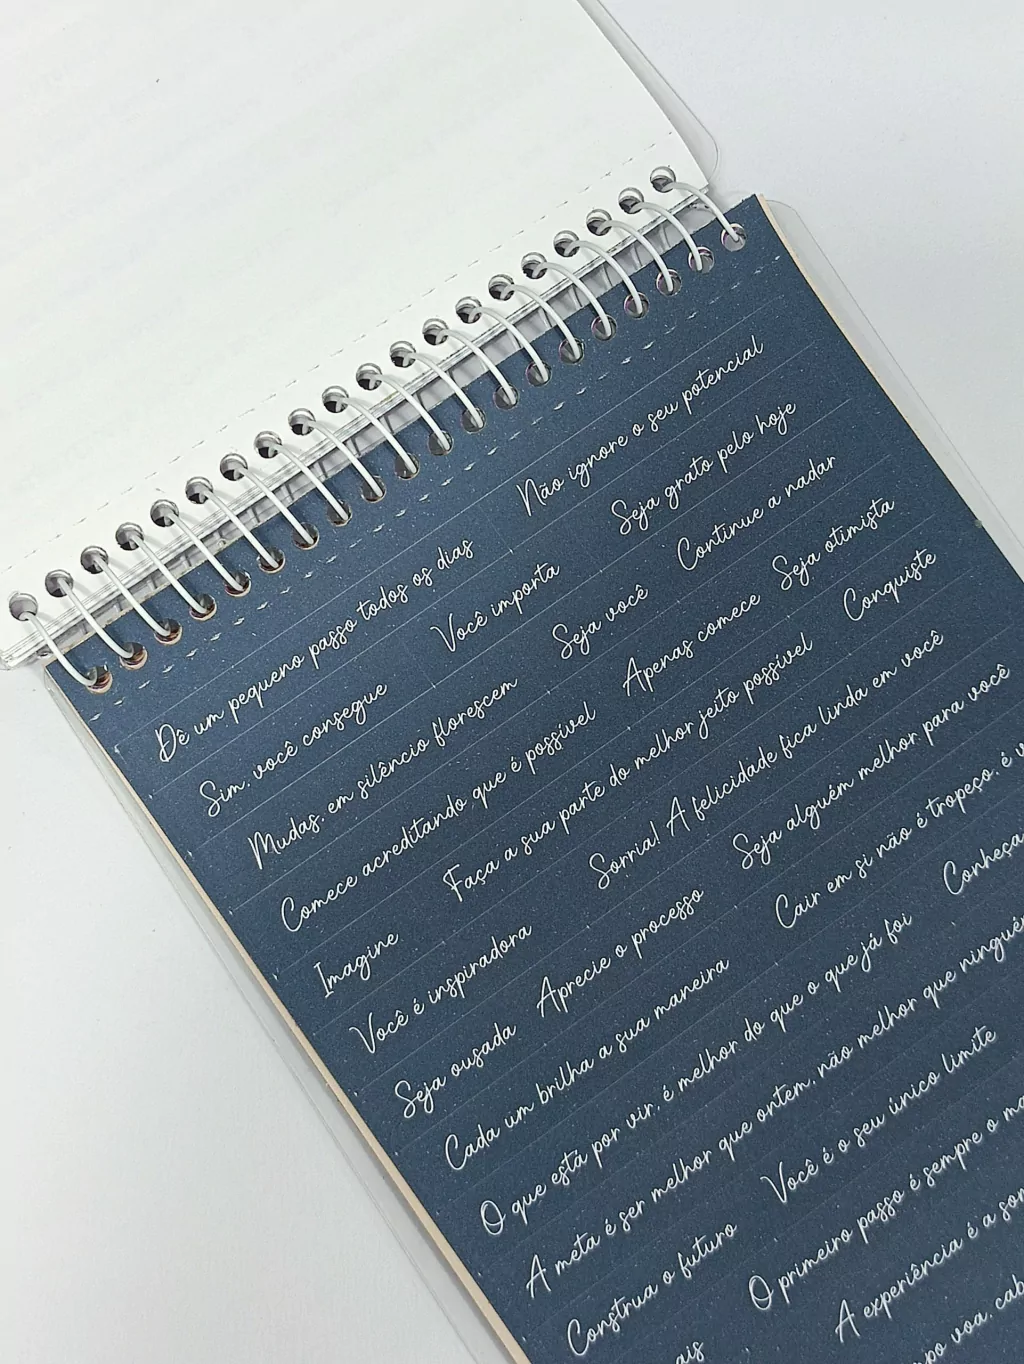 Dê um pequeno passo todos os dias Não ignore o seu potencial
Sim, você consegue Você importa Seja grato pelo hoje
Mudas, em silêncio florescem Seja você Continue a nadar
Comece acreditando que é possível Apenas comece Seja otimista
Imagine Faça a sua parte do melhor jeito possível Conquiste
Você é inspiradora Sorria! A felicidade fica linda em você
Seja ousada Aprecie o processo Seja alguém melhor para você
Cada um brilha a sua maneira Cair em si não é tropeço, é
O que está por vir, é melhor do que o que já foi Conheça
A meta é ser melhor que ontem, não melhor que ningué
Construa o futuro Você é o seu único limite
ais O primeiro passo é sempre o ma
A experiência é a som
mpo voa, cab